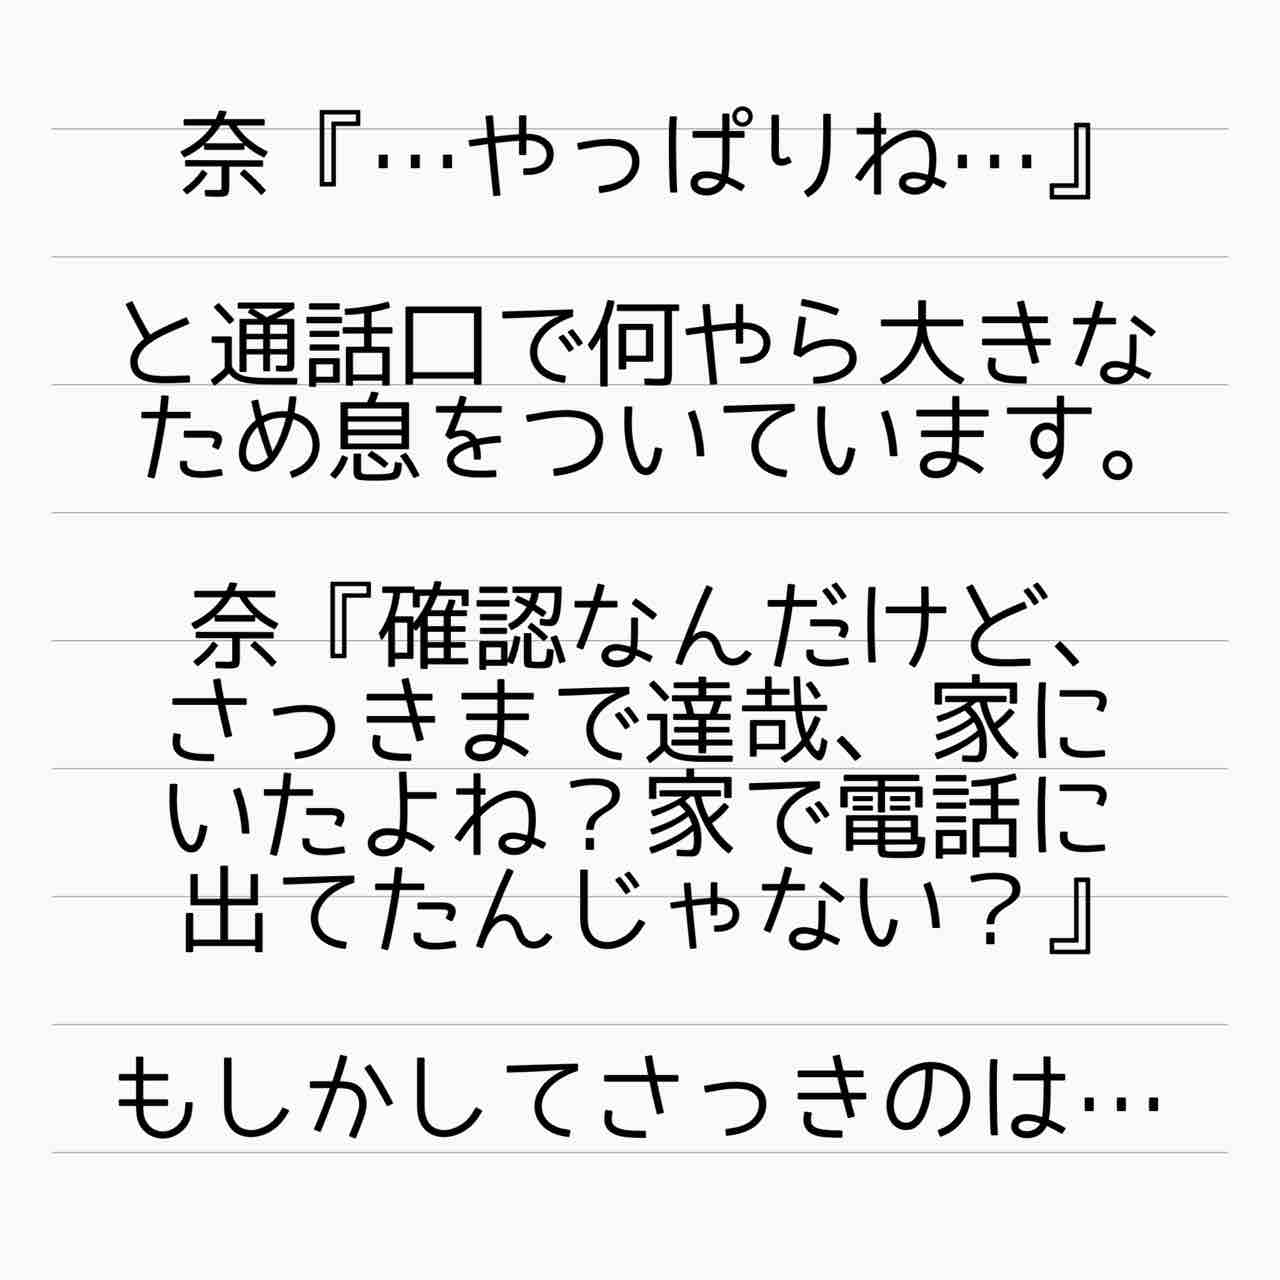 奈『…やっぱりね…』
と通話口で何やら大きな
ため息をついています。
奈『確認なんだけど、
さっきまで達哉、家に
いたよね？家で電話に
出てたんじゃない？』
もしかしてさっきのは…